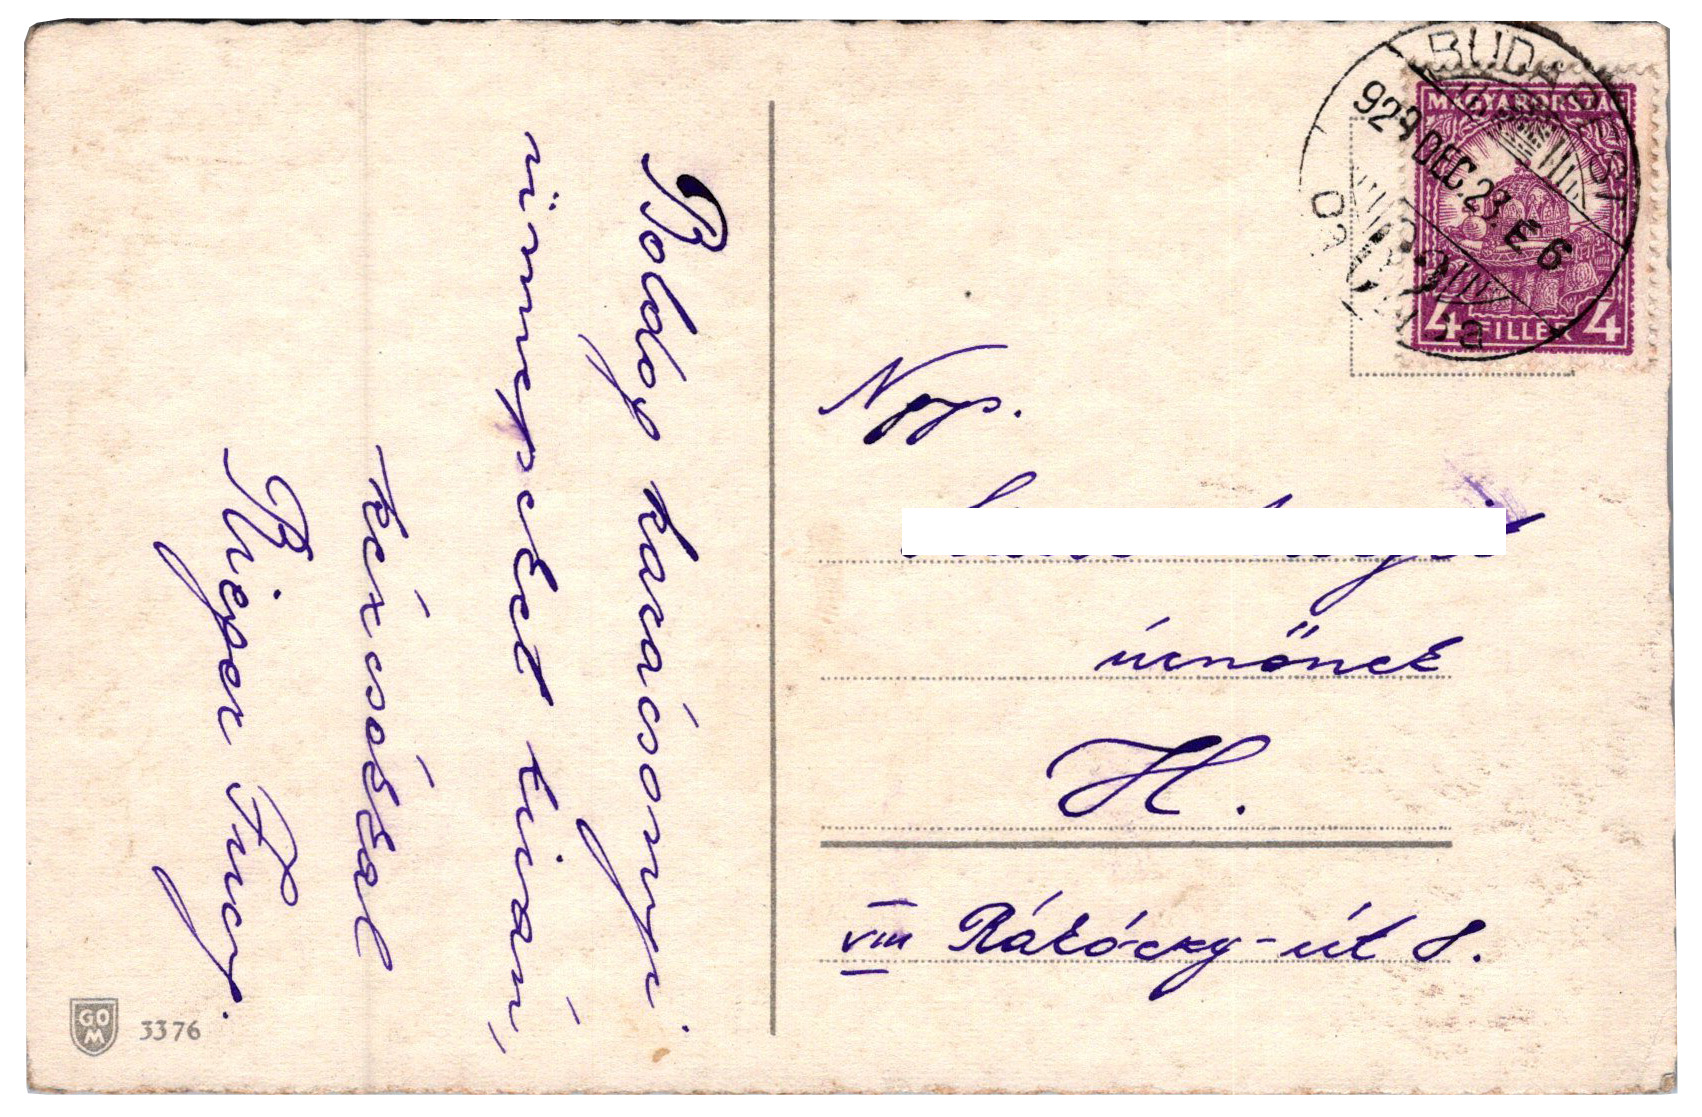 Boldog karácsonyi
ünnepeket kiván,
kézcsókkal
Rieger Fricy.
GOM 3376
BUDAPEST
929 DEC. 23. E 6
MAGYARORSZÁG
4 FILLÉR 4
Ngys.
úrnőnek
H.
VIII Rákóczy-út 8.